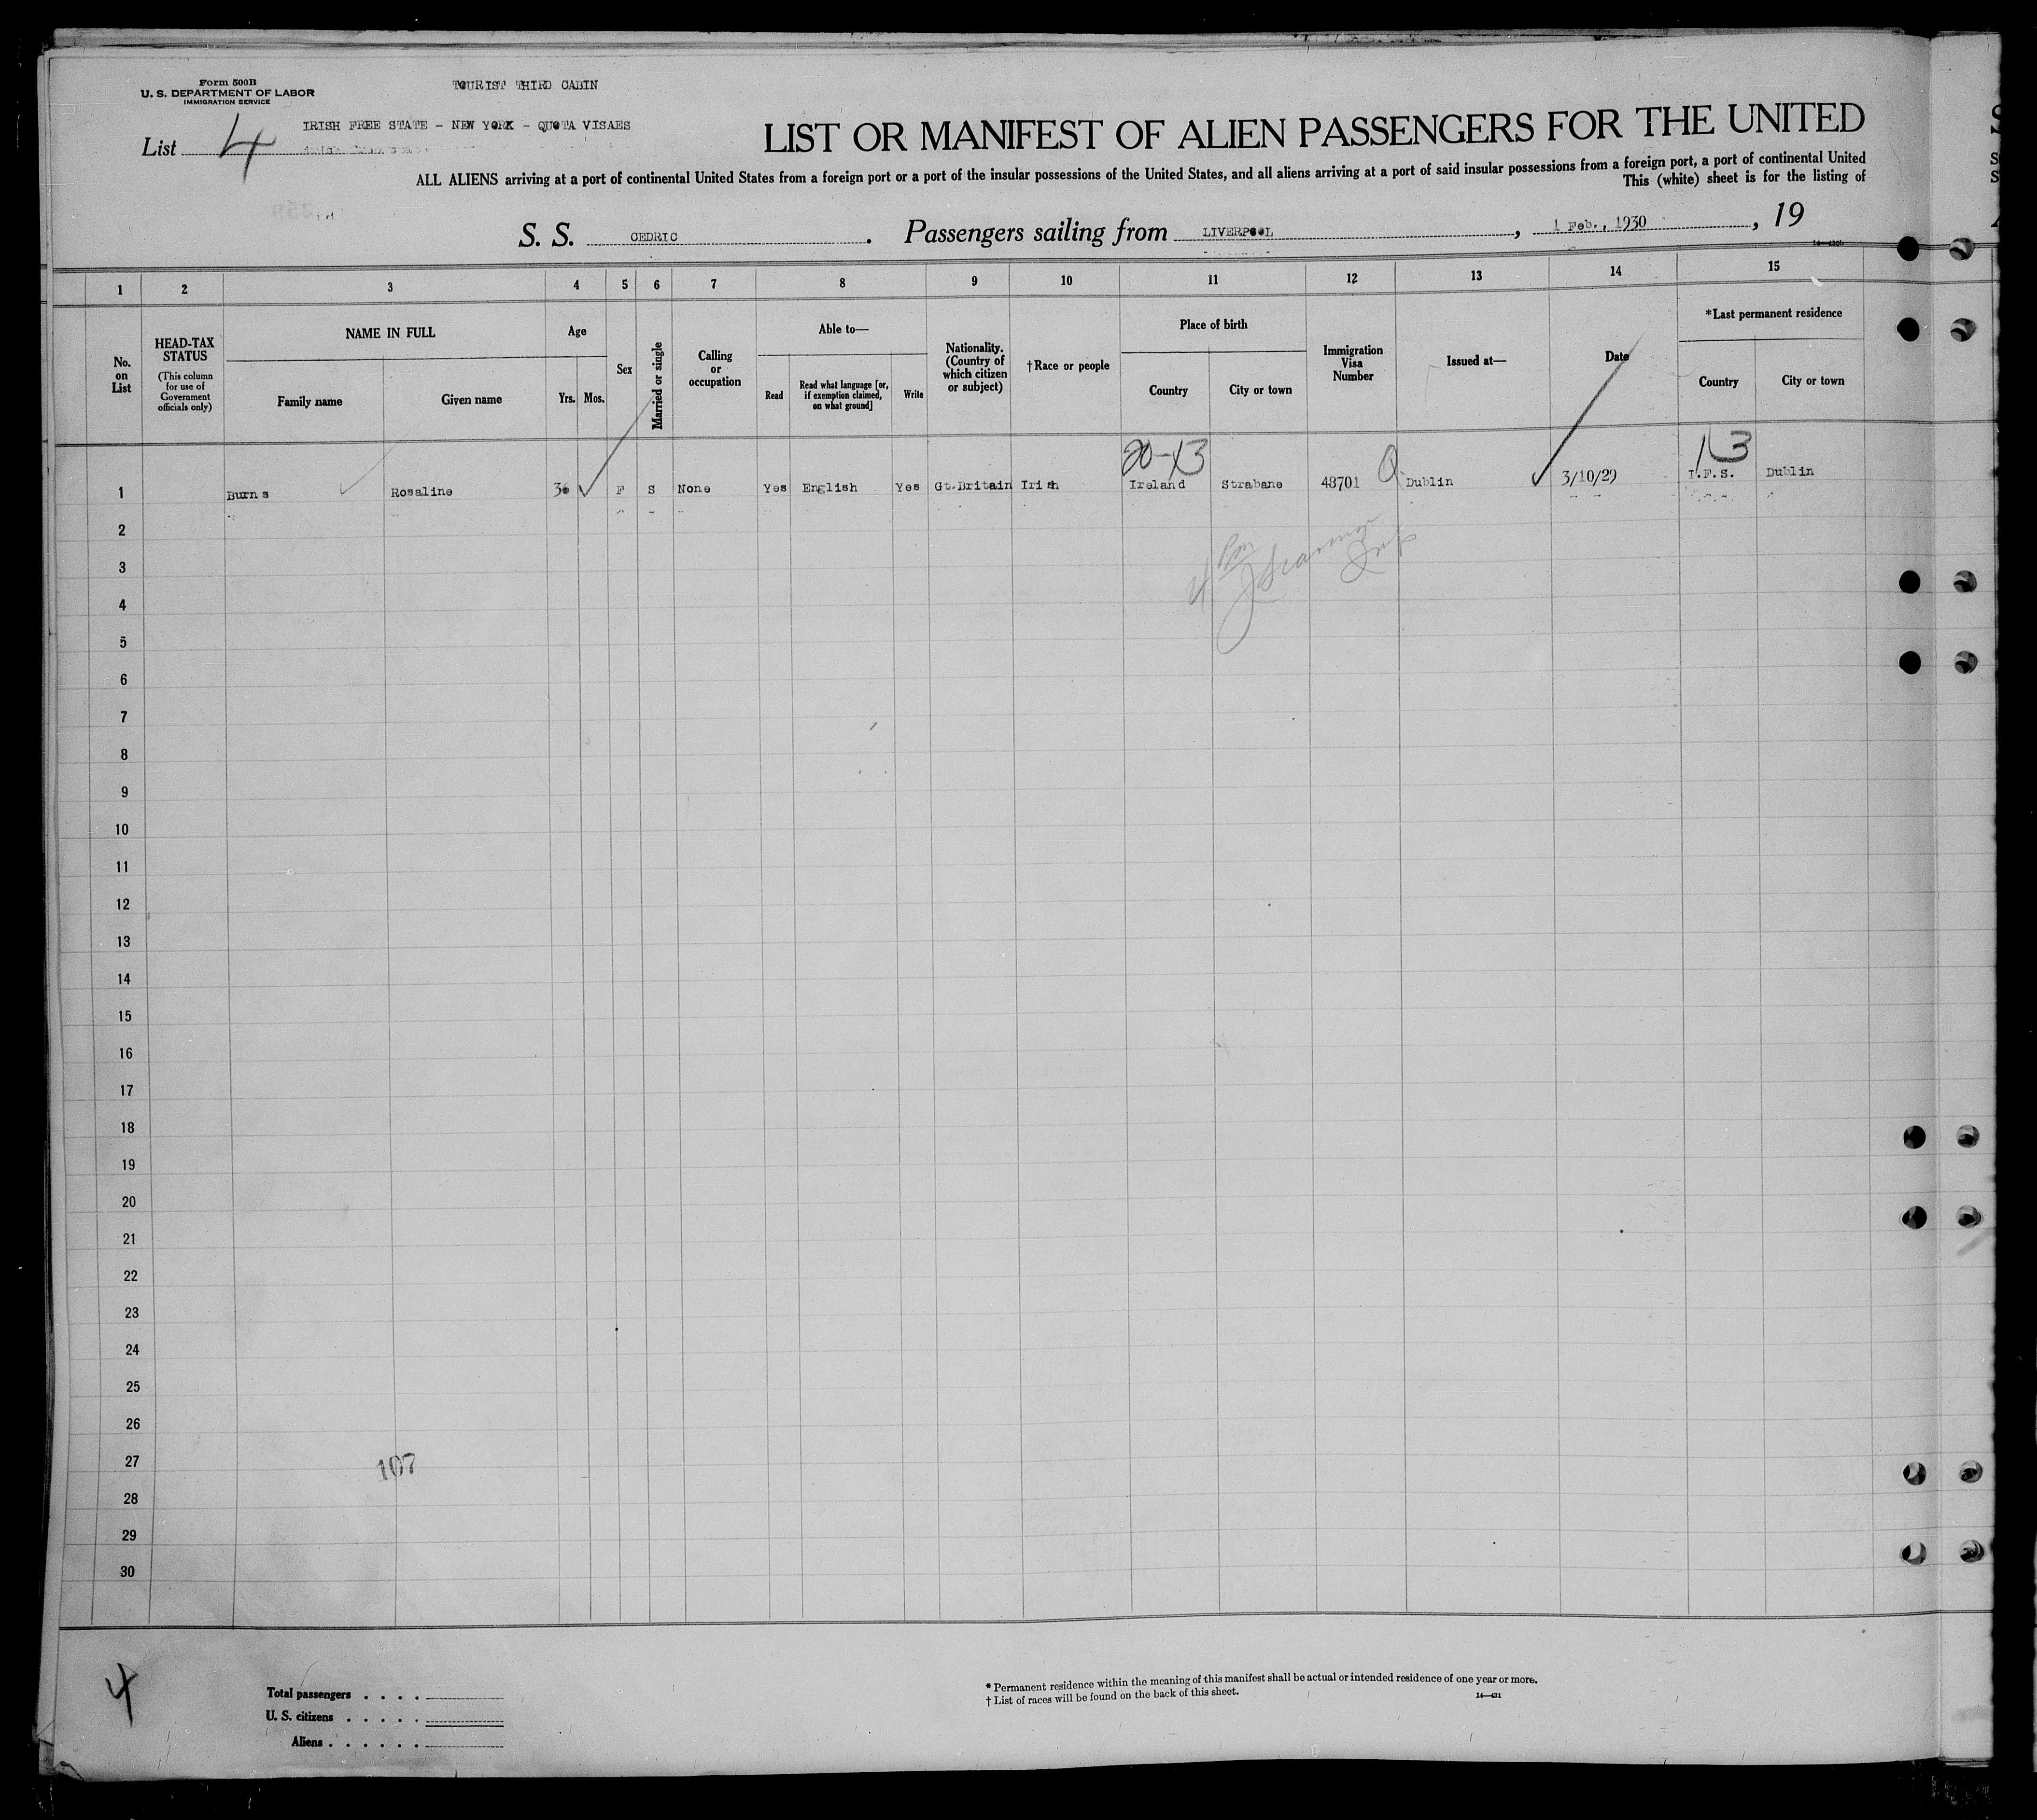 Form 500B
U. S. DEPARTMENT OF LABOR
IMMIGRATION SERVICE
TOURIST THIRD CABIN
IRISH FREE STATE - NEW YORK - QUOTA VISAES
List 4
LIST OR MANIFEST OF ALIEN PASSENGERS FOR THE UNITED
ALL ALIENS arriving at a port of continental United States from a foreign port or a port of the insular possessions of the United States, and all aliens arriving at a port of said insular possessions from a foreign port, a port of continental United
This (white) sheet is for the listing of
S. S. CEDRIC. Passengers sailing from LIVERPOOL, 1 Feb., 1930, 19
1 2 3 4 5 6 7 8 9 10 11 12 13 14 15
No. on List
HEAD-TAX STATUS
(This column for use of Government officials only)
NAME IN FULL
Family name
Given name
Age
Yrs.
Mos.
Sex
Married or single
Calling or occupation
Able to—
Read
Read what language [or, if exemption claimed, on what ground]
Write
Nationality. (Country of which citizen or subject)
†Race or people
Place of birth
Country
City or town
Immigration Visa Number
Issued at—
Date
*Last permanent residence
Country
City or town
20-13
13
1 Burns Rosaline 36 F S None Yes English Yes Gt.Britain Irish Ireland Strabane 48701 Q Dublin 3/10/29 I.F.S. Dublin
2
3
4
5
6
7
8
9
10
11
12
13
14
15
16
17
18
19
20
21
22
23
24
25
26
27
107
28
29
30
4
Total passengers . . . .
U. S. citizens . . . . .
Aliens . . . . . .
* Permanent residence within the meaning of this manifest shall be actual or intended residence of one year or more.
† List of races will be found on the back of this sheet.
14—431